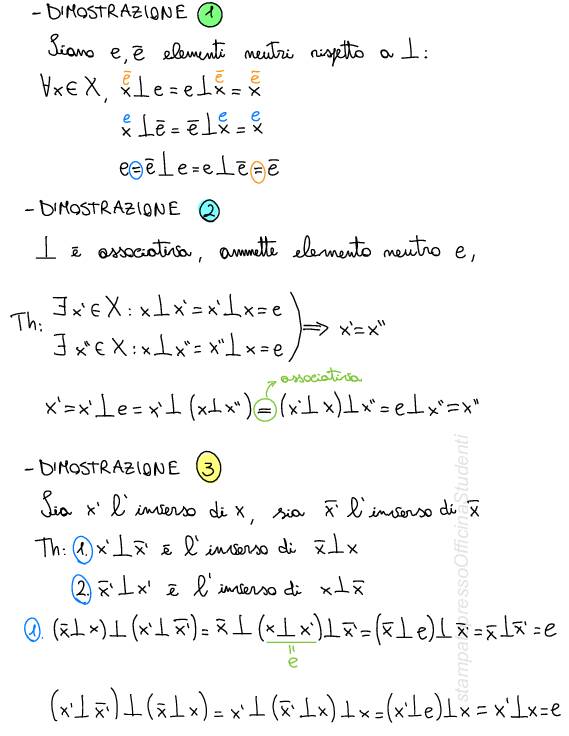 - DIMOSTRAZIONE 1
Siano e, ē elementi neutri rispetto a ⊥:
ē ē ē
∀x∈X, x⊥e = e⊥x = x
e e e
x⊥ē = ē⊥x = x
e = ē⊥e = e⊥ē = ē
- DIMOSTRAZIONE 2
⊥ è associativa, ammette elemento neutro e,
Th: ∃x'∈X : x⊥x' = x'⊥x = e
∃x''∈X : x⊥x'' = x''⊥x = e ) ⟹ x' = x''
associativa
x' = x'⊥e = x'⊥(x⊥x'') = (x'⊥x)⊥x'' = e⊥x'' = x''
- DIMOSTRAZIONE 3
Sia x' l'inverso di x, sia x̄' l'inverso di x̄
Th: 1. x'⊥x̄' è l'inverso di x̄⊥x
2. x̄'⊥x' è l'inverso di x⊥x̄
1. (x̄⊥x)⊥(x'⊥x̄') = x̄⊥(x⊥x')⊥x̄' = (x̄⊥e)⊥x̄' = x̄⊥x̄' = e
=
e
(x'⊥x̄')⊥(x̄⊥x) = x'⊥(x̄'⊥x)⊥x = (x'⊥e)⊥x = x'⊥x = e
stampatopressoOfficinaStudenti